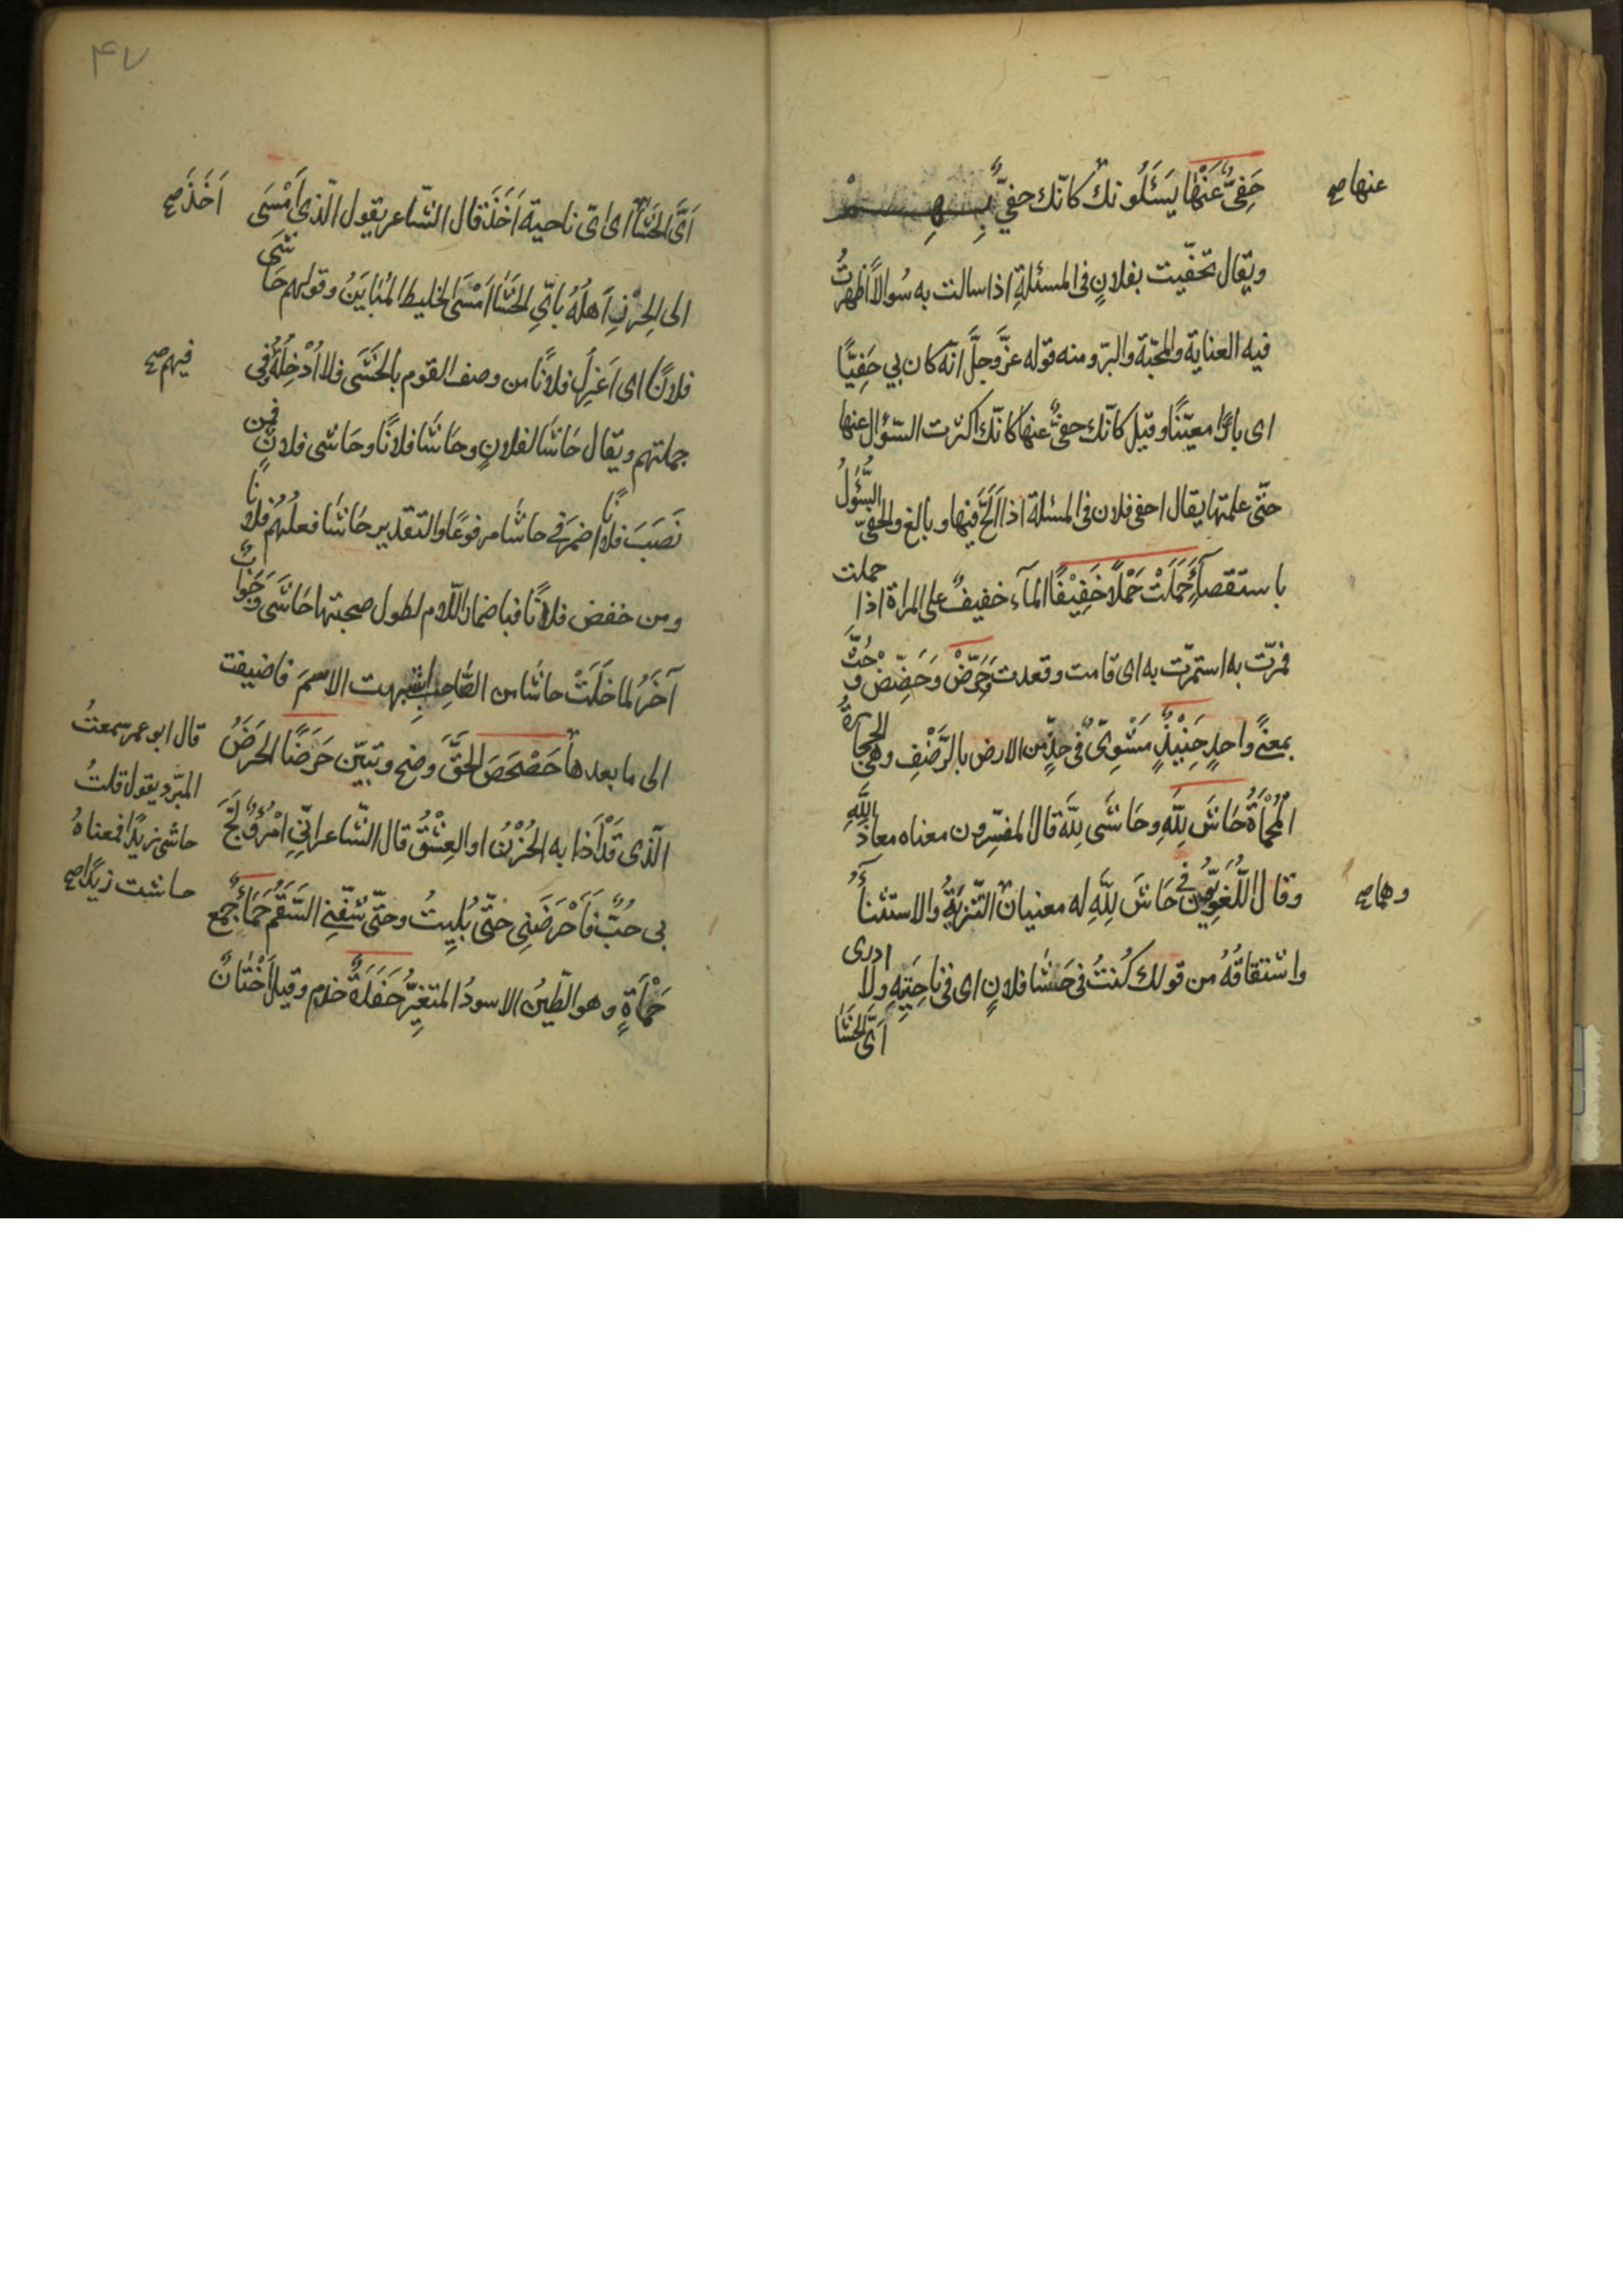 حَفِىٌّ عَنْها يَسَئَلُونكَ كانّك حفىٌّ بِهِمْ
عنها صح
ويقال تحفّيت بفلانٍ فى المسئلةِ اذا سالت به سُوالاً اَظهرتُ
فيه العناية والمحبّة والبرّ ومنه قوله عزّ وجلَّ انّه كان بي حَفِيًّا
اى بارًّا معيّنًا وقيل كانّك حفىٌّ عنها كانّك اكثرت السّؤال عنها
حتّى علمتها يقال احفى فلان فى المسئلة اذا اَلَحَّ فيها وبالغ والحفىّ السَّؤُلُ
باستقصآءٍ حَمَلَتْ حَمْلًا خَفِيْفًا المآء خفيفٌ على المراة اذا حملت
فمرّت به استمرّت به اى قامت وقعدت حَرِّضْ وَحَضِّضْ وحُثَّ
بمعنًى واحدٍ حَنِيْذٍ مَشْوِىٌّ فى خدٍّ من الارض بالرَّضْفِ وهى الحجارةُ
المُحْمَاةُ حَاشَ لِلّهِ وحَاشَى لِلّهِ قال المفسّرون معناه معاذ اللّهِ
وقال اللُّغويّون فى حَاشَ لِلّهِ له معنيان التّنزيهُ والاستثنآءُ
وهما صح
واشتقاقُهُ من قولك كُنتُ فى حَشَا فلانٍ اى فى ناحِيَتِهِ ولا ادرى
اَىَّ الحَشَا
۴۷
اَىَّ الحَشَا اى اىّ ناحية اَخَذَ قال الشّاعر يقول الّذى اَمْسَى
اَخَذَ صح
الى الحِزْنِ اَهلُهُ باىِّ الحَشَا اَمْسَى الخليط المُبَايَنُ وقولهم حَاشَى
فلانًا اى اَعْزِلُ فلانًا من وصف القوم بالحَشَى فلا اُدْخِلُهُ فى
فيهم صح
جملتهم ويقال حَاشَا لفلانٍ وحَاشَا فلانًا وحَاشى فلانٍ فمن
نَصَبَ فلانًا اضمَرَ فى حاشَا مرفوعًا والتقدير حَاشَا فعلُهُمْ فلانًا
ومن خفض فلانًا فباضمار اللّام لطول صحبتها حَاشَى وَجَوابٌ
آخَرُ لما خَلَتْ حاشا من الصَّاحِبِ اشبهت الاسمَ فاضيفت
الى ما بعدها حَصْحَصَ الحَقُّ وضح وتبيّن حَرَضًا الحَرَضُ
الّذى قَدْ اَذَابه الحُزْنُ او العِشْقُ قال الشّاعر اِنّى امْرُؤٌ لَجَّ
بى حُبٌّ فَاَحْرَضَنِى حتّى بُلِيتُ وحتّى شَفّنِى السَّقَمُ حَمَاءٍ جُمِع
حَمْاَةٍ وهو الطّينُ الاسودُ المتغيِّرُ حَفَدَةً خدم وقيل اَخْتَانٌ
قال ابو عمر سمعتُ
المبّرد يقول قلتُ
حاشى زيدًا فمعناهُ
حاشيت زيدًا صح